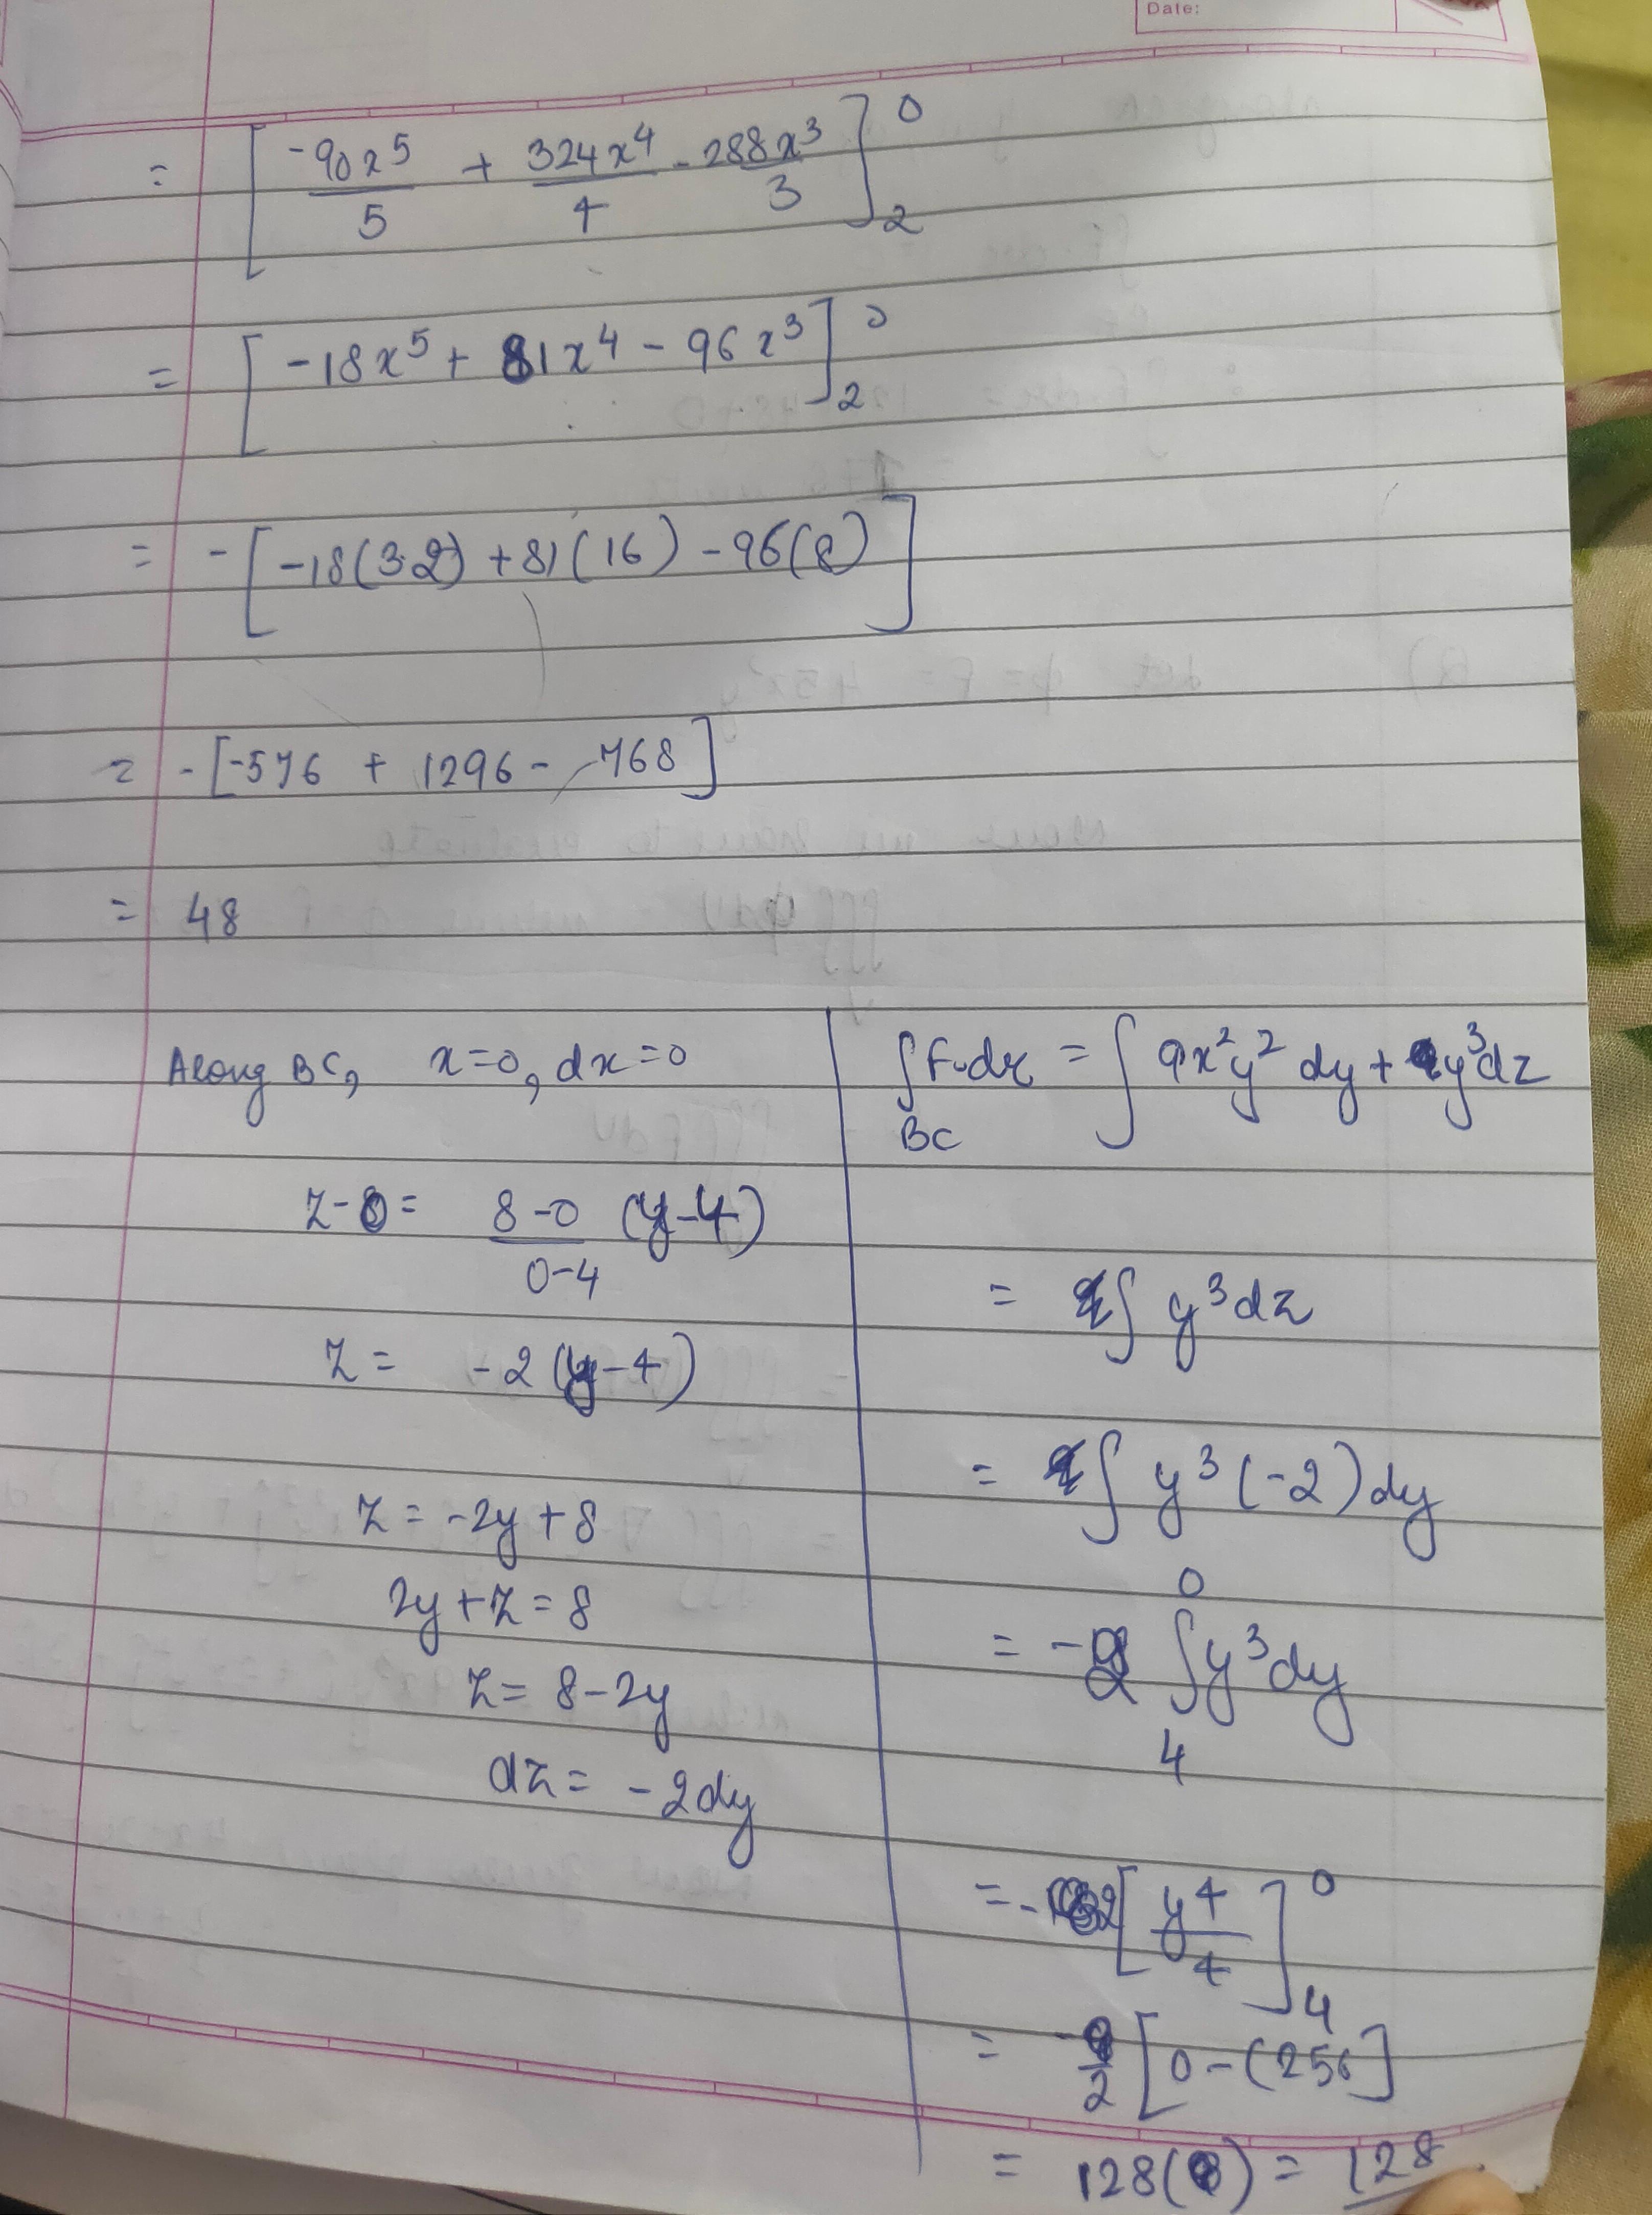 Date:
= [ -90x⁵/5 + 324x⁴/4 - 288x³/3 ]₂⁰
= [ -18x⁵ + 81x⁴ - 96x³ ]₂⁰
= - [ -18(32) + 81(16) - 96(8) ]
= - [ -576 + 1296 - 768 ]
= 48
Along BC, x=0, dx=0
z-0 = (8-0)/(0-4) (y-4)
z = -2(y-4)
z = -2y+8
2y+z=8
z= 8-2y
dz= -2dy
∫F.dr = ∫ 9x²y² dy + y³dz
BC
= ∫ y³dz
= ∫ y³(-2)dy
= -2 ∫₄⁰ y³dy
= -2 [ y⁴/4 ]₄⁰
= -/2 [ 0-(256 ]
= 128( ) = 128